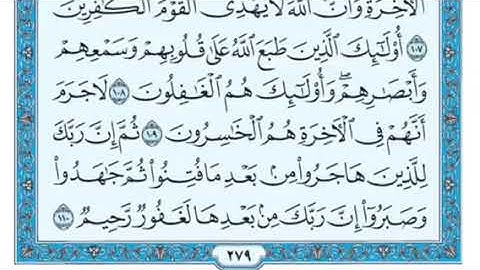 الْآخِرَةِ وَأَنَّ اللَّهَ لَا يَهْدِي الْقَوْمَ الْكَافِرِينَ
١٠٧ أُولَٰئِكَ الَّذِينَ طَبَعَ اللَّهُ عَلَىٰ قُلُوبِهِمْ وَسَمْعِهِمْ
وَأَبْصَارِهِمْ ۖ وَأُولَٰئِكَ هُمُ الْغَافِلُونَ ١٠٨ لَا جَرَمَ
أَنَّهُمْ فِي الْآخِرَةِ هُمُ الْخَاسِرُونَ ١٠٩ ثُمَّ إِنَّ رَبَّكَ
لِلَّذِينَ هَاجَرُوا مِنْ بَعْدِ مَا فُتِنُوا ثُمَّ جَاهَدُوا
وَصَبَرُوا إِنَّ رَبَّكَ مِنْ بَعْدِهَا لَغَفُورٌ رَحِيمٌ ١١٠
٢٧٩